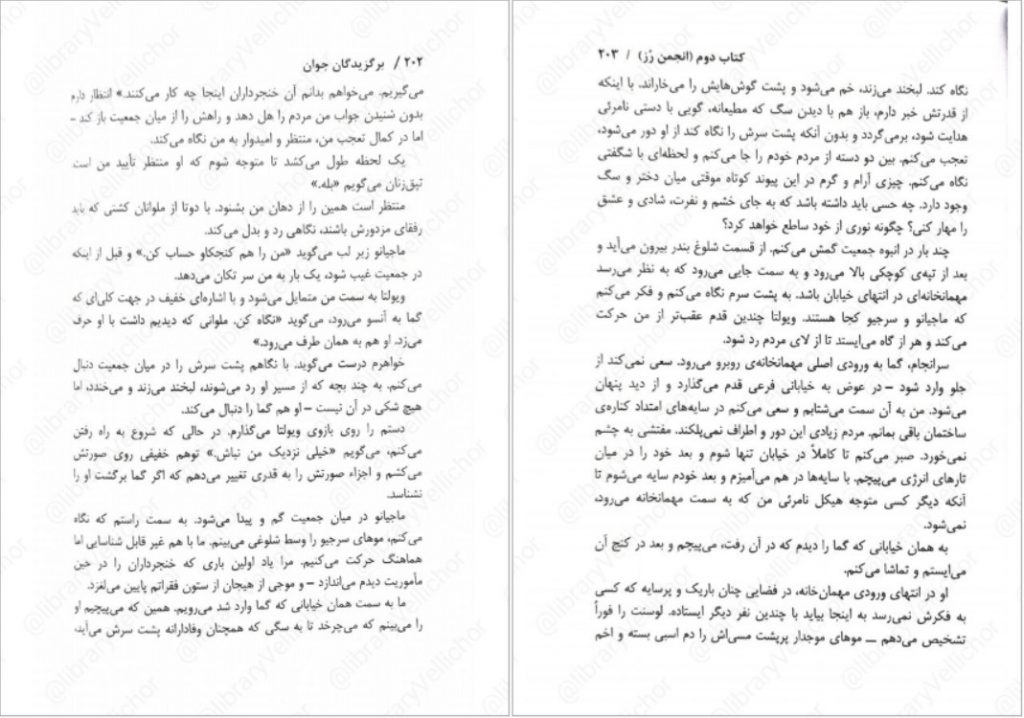 ۲۰۲ / برگزیدگان جوان
می‌گیریم. می‌خواهم بدانم آن خنجرداران اینجا چه کار می‌کنند.» انتظار دارم
بدون شنیدن جواب من مردم را هل دهد و راهش را از میان جمعیت باز کند –
اما در کمال تعجب من، منتظر و امیدوار به من نگاه می‌کند.
یک لحظه طول می‌کشد تا متوجه شوم که او منتظر تأیید من است.
تپق‌زنان می‌گویم «بله.»
منتظر است همین را از دهان من بشنود. با دوتا از ملوانان کشتی که باید
رفقای مزدورش باشند، نگاهی رد و بدل می‌کند.
ماجیانو زیر لب می‌گوید «من را هم کنجکاو حساب کن.» و قبل از اینکه
در جمعیت غیب شود، یک بار به من سر تکان می‌دهد.
ویولتا به سمت من متمایل می‌شود و با اشاره‌ای خفیف در جهت کلی‌ای که
گما به آنسو می‌رود، می‌گوید «نگاه کن. ملوانی که دیدیم داشت با او حرف
می‌زد. او هم به همان طرف می‌رود.»
خواهرم درست می‌گوید. با نگاهم پشت سرش را در میان جمعیت دنبال
می‌کنم. به چند بچه که از مسیر او رد می‌شوند، لبخند می‌زند و می‌خندد، اما
هیچ شکی در آن نیست – او هم گما را دنبال می‌کند.
دستم را روی بازوی ویولتا می‌گذارم. در حالی که شروع به راه رفتن
می‌کنم، می‌گویم «خیلی نزدیک من نباش.» توهم خفیفی روی صورتش
می‌کشم و اجزاء صورتش را به قدری تغییر می‌دهم که اگر گما برگشت او را
نشناسد.
ماجیانو در میان جمعیت گم و پیدا می‌شود. به سمت راستم که نگاه
می‌کنم، موهای سرجیو را وسط شلوغی می‌بینم. ما با هم غیر قابل شناسایی اما
هماهنگ حرکت می‌کنیم. مرا یاد اولین باری که خنجرداران را در حین
مأموریت دیدم می‌اندازد – و موجی از هیجان از ستون فقراتم پایین می‌لغزد.
ما به سمت همان خیابانی که گما وارد شد می‌رویم. همین که می‌پیچیم او
را می‌بینم که می‌چرخد تا به سگی که همچنان وفادارانه پشت سرش می‌آید،
کتاب دوم (انجمن رُز) / ۲۰۳
نگاه کند. لبخند می‌زند، خم می‌شود و پشت گوش‌هایش را می‌خاراند. با اینکه
از قدرتش خبر دارم، باز هم با دیدن سگ که مطیعانه، گویی با دستی نامرئی
هدایت شود، برمی‌گردد و بدون آنکه پشت سرش را نگاه کند از او دور می‌شود،
تعجب می‌کنم. بین دو دسته از مردم خودم را جا می‌کنم و لحظه‌ای با شگفتی
نگاه می‌کنم. چیزی آرام و گرم در این پیوند کوتاه موقتی میان دختر و سگ
وجود دارد. چه حسی باید داشته باشد که به جای خشم و نفرت، شادی و عشق
را مهار کنی؟ چگونه نوری از خود ساطع خواهد کرد؟
چند بار در انبوه جمعیت گمش می‌کنم. از قسمت شلوغ بندر بیرون می‌آید و
بعد از تپه‌ی کوچکی بالا می‌رود و به سمت جایی می‌رود که به نظر می‌رسد
مهمانخانه‌ای در انتهای خیابان باشد. به پشت سرم نگاه می‌کنم و فکر می‌کنم
که ماجیانو و سرجیو کجا هستند. ویولتا چندین قدم عقب‌تر از من حرکت
می‌کند و هر از گاه می‌ایستد تا از لای مردم رد شود.
سرانجام، گما به ورودی اصلی مهمانخانه‌ی روبرو می‌رود. سعی نمی‌کند از
جلو وارد شود – در عوض به خیابانی فرعی قدم می‌گذارد و از دید پنهان
می‌شود. من به آن سمت می‌شتابم و سعی می‌کنم در سایه‌های امتداد کناره‌ی
ساختمان باقی بمانم. مردم زیادی این دور و اطراف نمی‌پلکند. مفتشی به چشم
نمی‌خورد. صبر می‌کنم تا کاملاً در خیابان تنها شوم و بعد خود را در میان
تارهای انرژی می‌پیچم. با سایه‌ها در هم می‌آمیزم و بعد خودم سایه می‌شوم تا
آنکه دیگر کسی متوجه هیکل نامرئی من که به سمت مهمانخانه می‌رود،
نمی‌شود.
به همان خیابانی که گما را دیدم که در آن رفت، می‌پیچم و بعد در کنج آن
می‌ایستم و تماشا می‌کنم.
او در انتهای ورودی مهمان‌خانه، در فضایی چنان باریک و پرسایه که کسی
به فکرش نمی‌رسد به اینجا بیاید با چندین نفر دیگر ایستاده. لوسنت را فوراً
تشخیص می‌دهم ــ موهای موجدار پرپشت مسی‌اش را دم اسبی بسته و اخم
@libraryVellichor